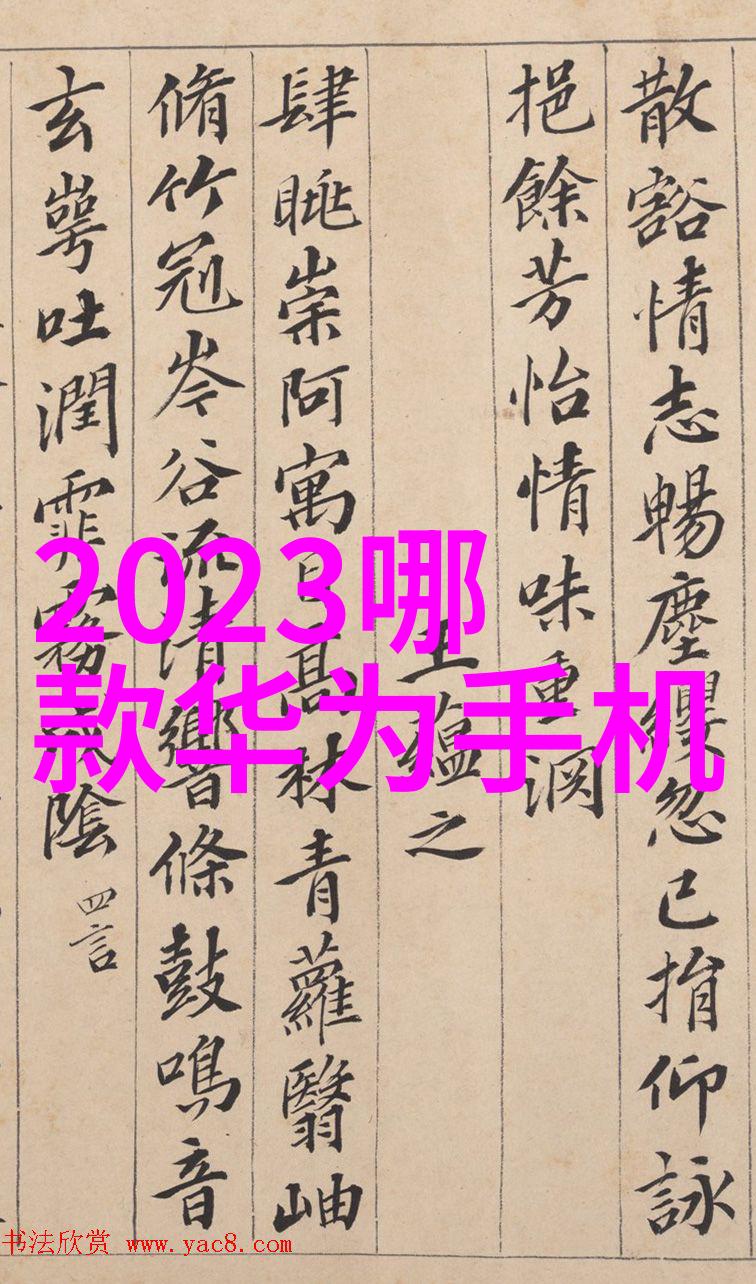 散豁情志暢塵纓忽已捐仰詠
挹餘芳怡情味重淵
王蘊之
肆眺崇阿寓目高林青蘿翳岫
脩竹冠岑谷流清響條鼓鳴音
玄崿吐潤霏霧成陰 四言
2023哪
款华为手机
书法欣赏 www.yac8.com